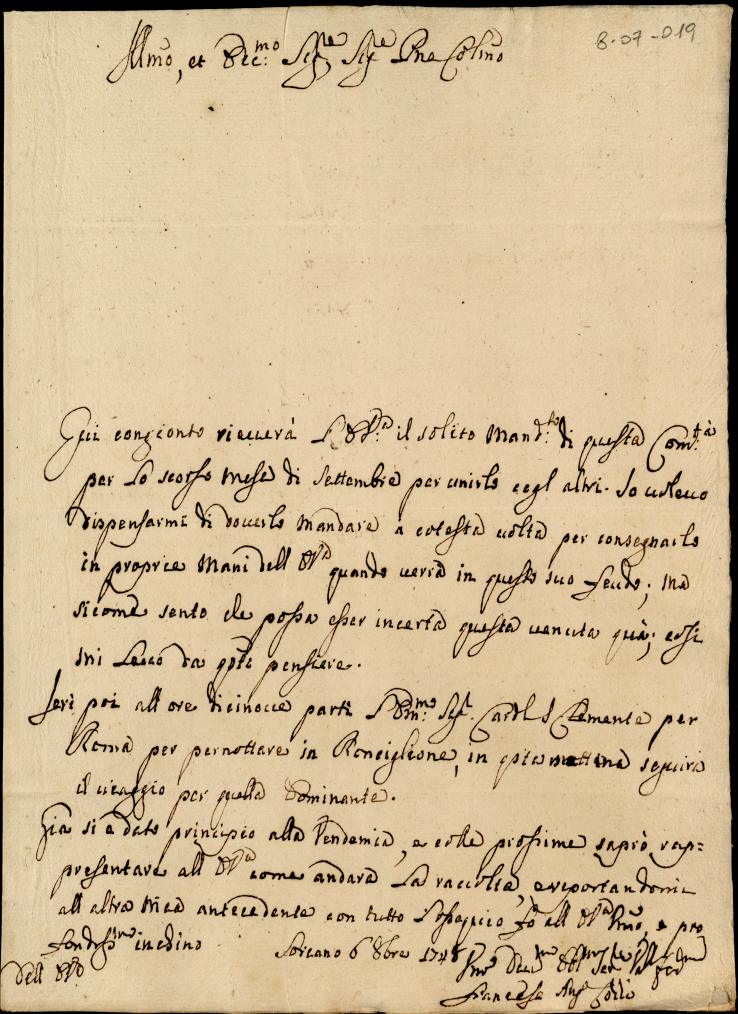 8-07-019
Illmo, et Ecc:mo Sigre Sigre Pne Colmo
Qui congionto riceverà l'E.Va il solito Mand:to di questa Com:tà
per lo scorso Mese di Settembre per unirlo cogl altri. Io volevo
dispensarmi di doverlo mandare a cotesta volta per consegnarlo
in proprie Mani dell EVa quando verrà in questo suo feudo; ma
sicome sento che possa esser incerta questa venuta quà; così
mi levo da qsto pensiere.
Ieri poi all ore dicinove partì l'Em:mo Sigr. Cardl S Clemente per
Roma per pernottare in Ronciglione, in qsta mattina seguirà
il viaggio per quella Dominante.
Già si è dato principio alla Vendemia, e colle prossime saprò rap=
presentare all EVa come andarà la raccolta, e reportandomi
all altra mia antecedente con tutto l'ossequio fò all EVa Umo, e pro
fondissmo inchino
Soriano 6 8bre 174
Dell EVa
Francesco